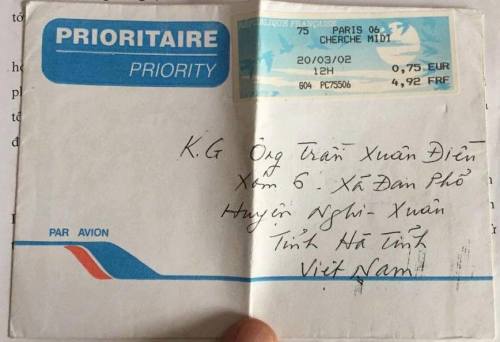 PRIORITAIRE
PRIORITY
RÉPUBLIQUE FRANÇAISE
75 PARIS 06
CHERCHE MIDI
20/03/02
12H
0,75 EUR
G04 PC75506
4,92 FRF
K.G Ông Trần Xuân Điền
Xóm 6 - Xã Đan Phổ
Huyện Nghi-Xuân
Tỉnh Hà Tĩnh
Việt Nam
PAR AVION